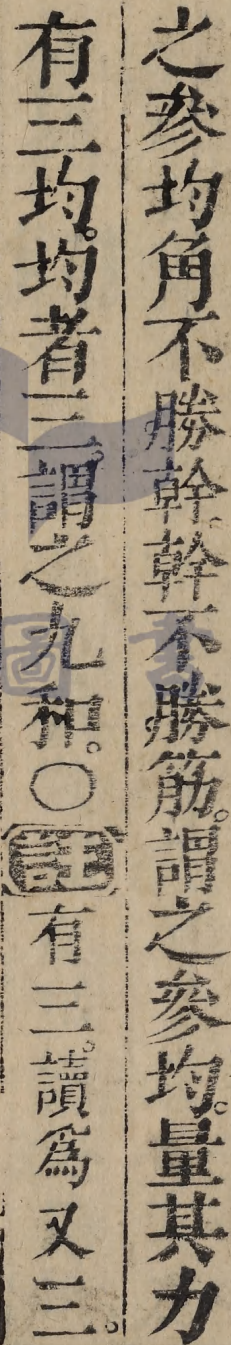 之參均角不勝幹。幹不勝筋。謂之參均。量其力
有三均。均者三。謂之九和。○註有三。讀爲又三。